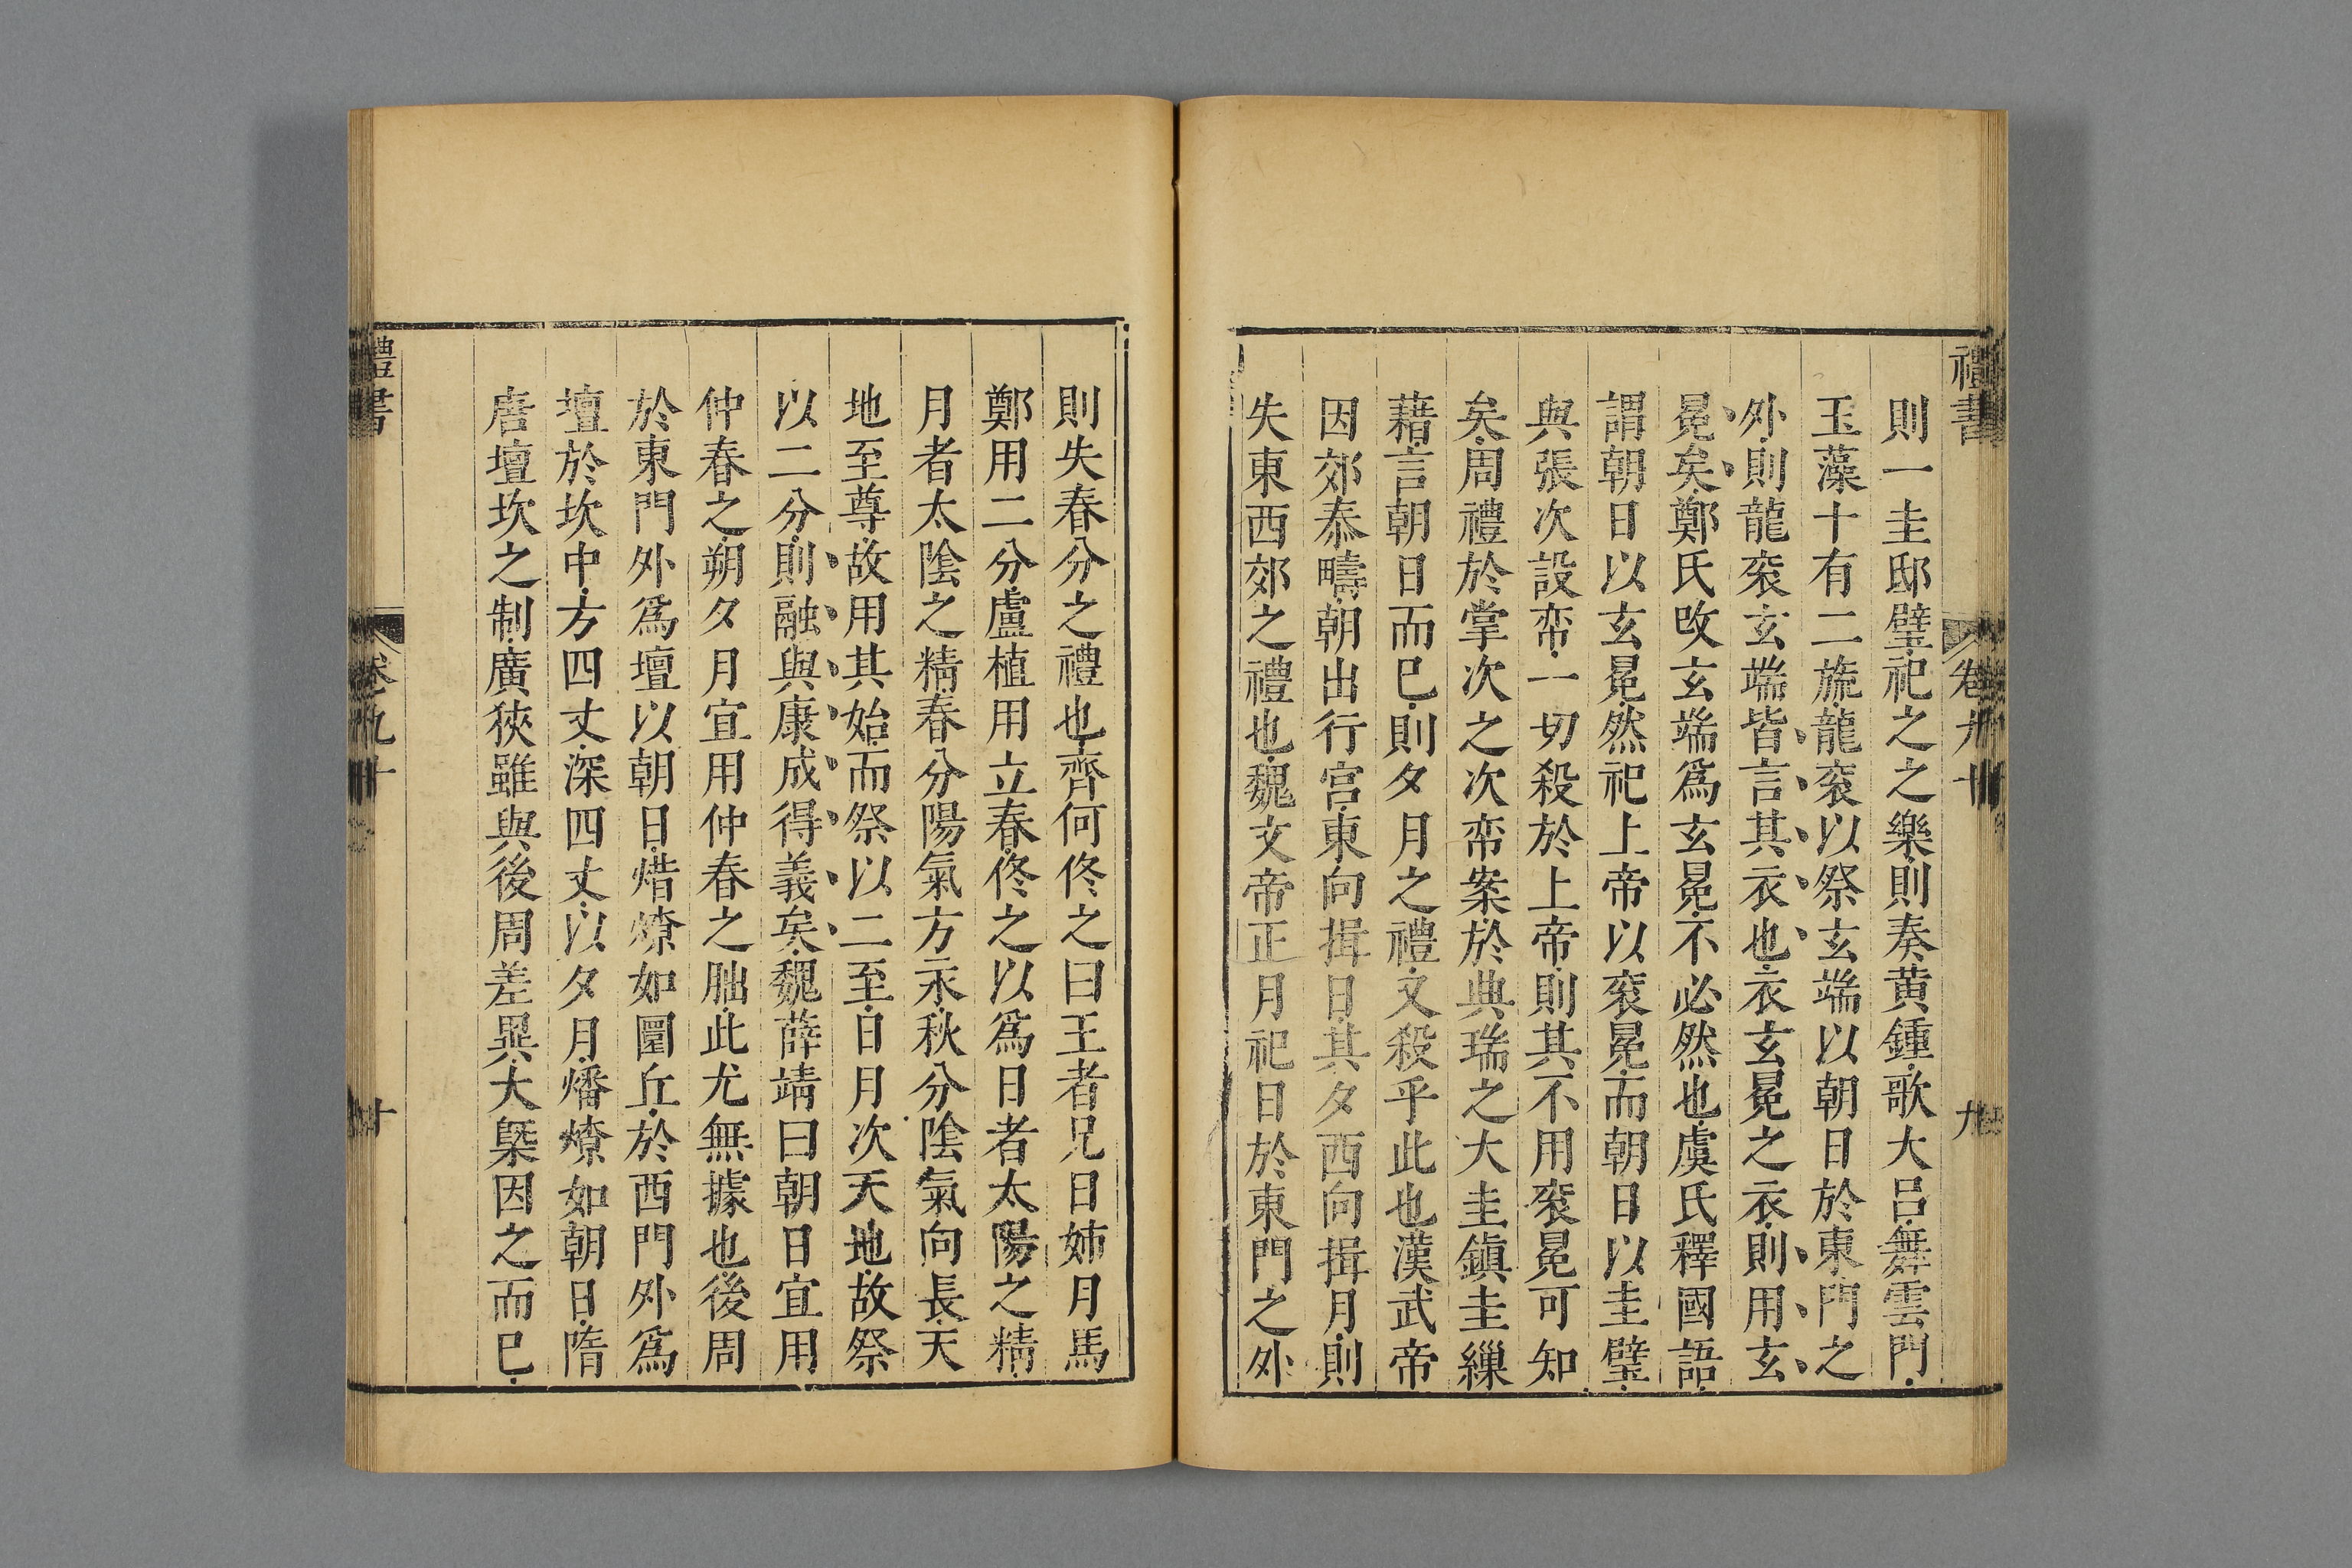 禮書 卷九十 九
則一圭邸璧祀之之樂則奏黄鍾歌大呂舞雲門
玉藻十有二旒龍衮以祭玄端以朝日於東門之
外則龍衮玄端皆言其衣也衣玄冕之衣則用玄
冕矣鄭氏改玄端爲玄冕不必然也虞氏釋國語
謂朝日以玄冕然祀上帝以衮冕而朝日以圭璧
與張次設帟一切殺於上帝則其不用衮冕可知
矣周禮於掌次之次帟案於典瑞之大圭鎭圭繅
藉言朝日而巳則夕月之禮又殺乎此也漢武帝
因郊泰疇朝出行宫東向揖日其夕西向揖月則
失東西郊之禮也魏文帝正月祀日於東門之外
則失春分之禮也齊何佟之曰王者兄日姊月馬
鄭用二分盧植用立春佟之以爲日者太陽之精
月者太陰之精春分陽氣方永秋分陰氣向長天
地至尊故用其始而祭以二至日月次天地故祭
以二分則融與康成得義矣魏薛靖曰朝日宜用
仲春之朔夕月宜用仲春之朏此尤無據也後周
於東門外爲壇以朝日燔燎如圜丘於西門外爲
壇於坎中方四丈深四丈以夕月燔燎如朝日隋
唐壇坎之制廣狹雖與後周差異大槩因之而巳
禮書 卷九十 十